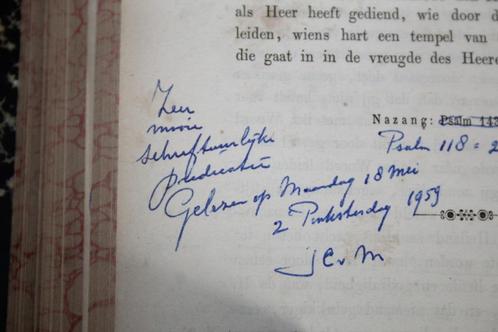 als Heer heeft gediend, wie door d
leiden, wiens hart een tempel van
die gaat in in de vreugde des Heere
Nazang: Psalm 143
Psalm 118 = 2
Zeer
mooie
schriftuurlijke
predicatie
Gelezen op Maandag 18 Mei
2 Pinksterdag 1959
J C v M